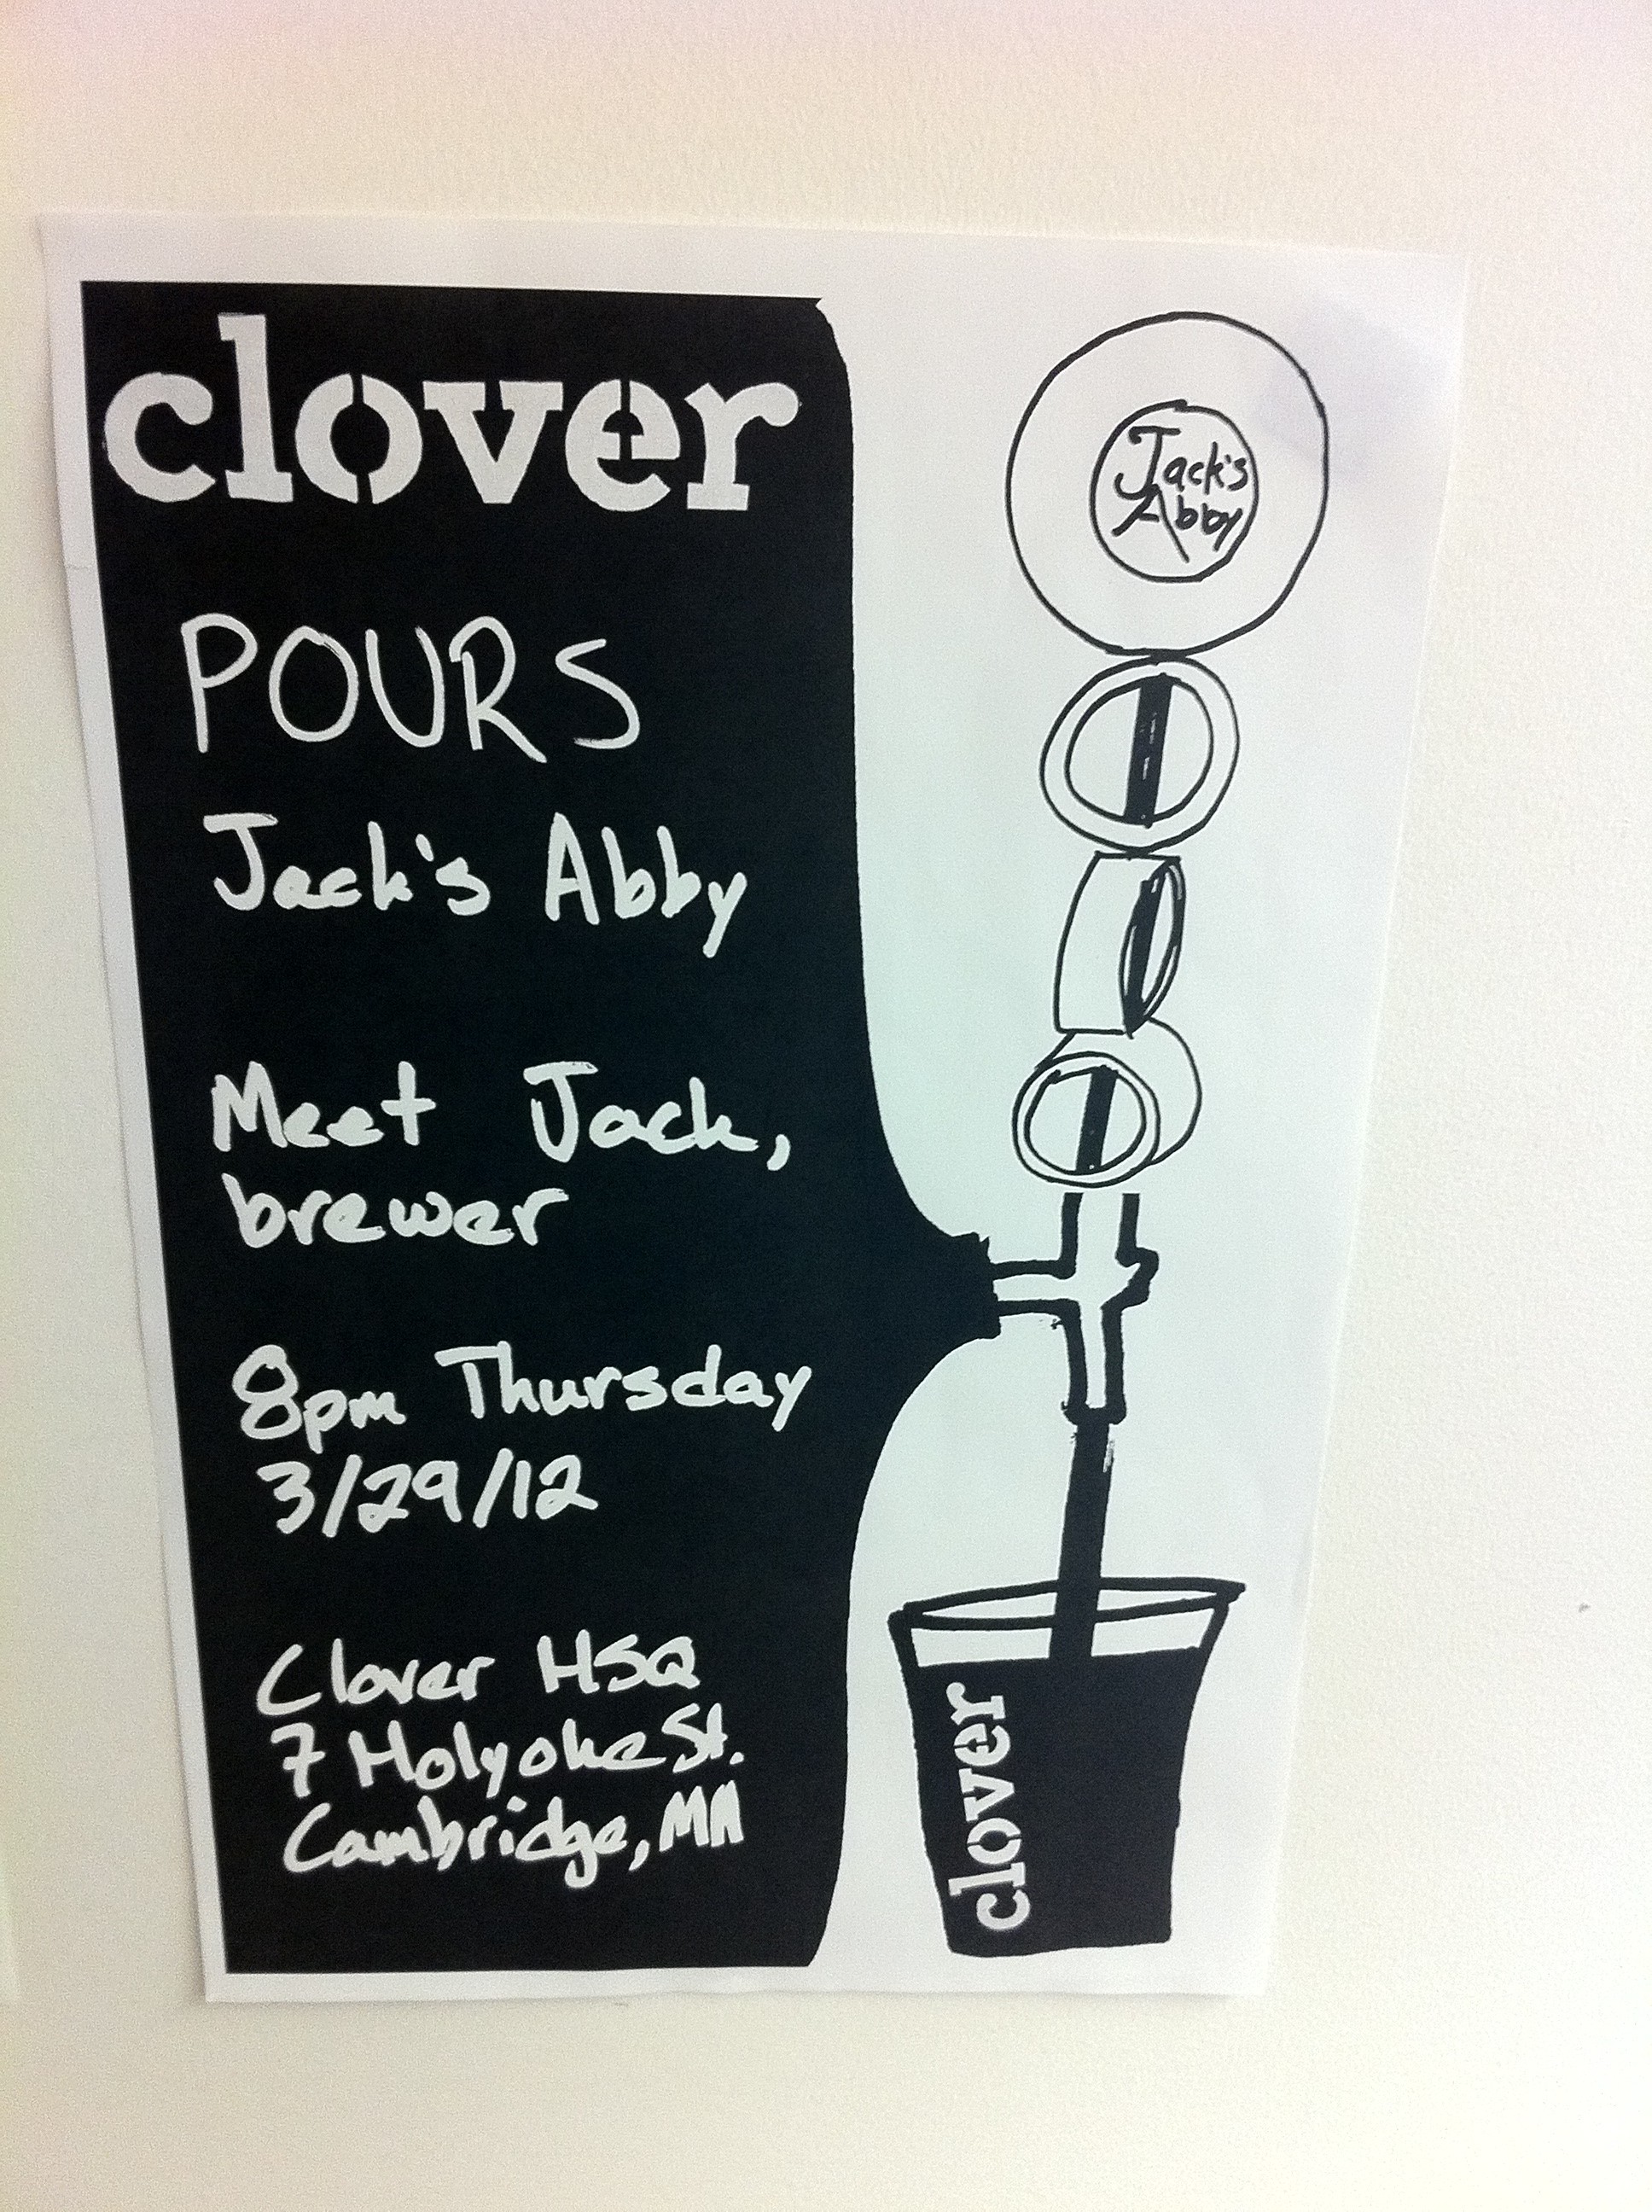 clover
POURS
Jack's Abby
Meet Jack,
brewer
8pm Thursday
3/29/12
Clover HSQ
7 Holyoke St.
Cambridge, MA
Jack's
Abby
clover